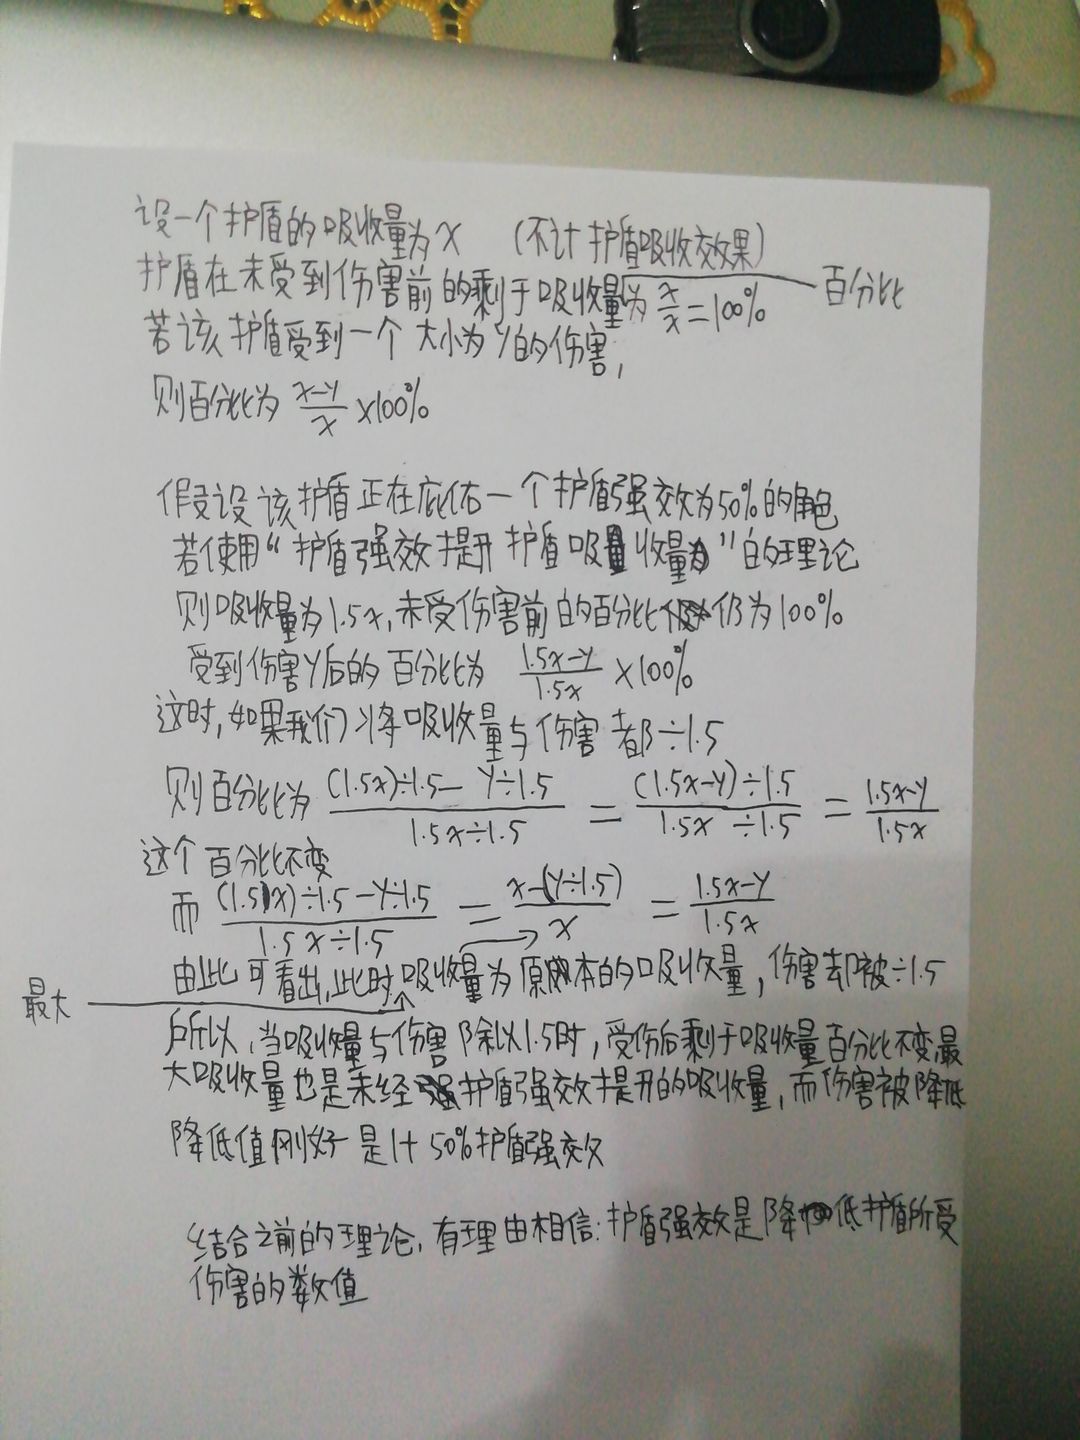 设一个护盾的吸收量为x （不计护盾吸收效果）
护盾在未受到伤害前的剩于吸收量为 x/x=100% 百分比
若该护盾受到一个大小为y的伤害，
则百分比为 x-y/x ×100%
假设该护盾正在庇佑一个护盾强效为50%的角色
若使用“护盾强效提升护盾吸收量”的理论
则吸收量为1.5x，未受伤害前的百分比仍为100%
受到伤害y后的百分比为 1.5x-y/1.5x ×100%
这时，如果我们将吸收量与伤害都÷1.5
则百分比为 (1.5x)÷1.5-y÷1.5/1.5x÷1.5 = (1.5x-y)÷1.5/1.5x÷1.5 = 1.5x-y/1.5x
这个百分比不变
而 (1.5x)÷1.5-y÷1.5/1.5x÷1.5 = x-(y÷1.5)/x = 1.5x-y/1.5x
由此可看出，此时吸收量为原本的吸收量，伤害却被÷1.5
最大
所以，当吸收量与伤害除以1.5时，受伤后剩于吸收量百分比不变，最
大吸收量也是未经护盾强效提升的吸收量，而伤害被降低
降低值刚好是1+50%护盾强效
结合之前的理论，有理由相信：护盾强效是降低护盾所受
伤害的数值